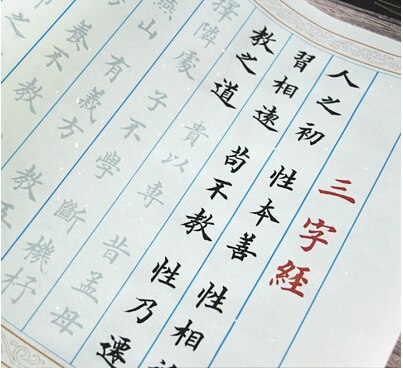 三字經
人之初 性本善 性相
習相遠 苟不教 性乃遷
教之道 貴以專 昔孟母
擇隣處 子不學 斷機杼
燕山 有義方 教五
養不教
之